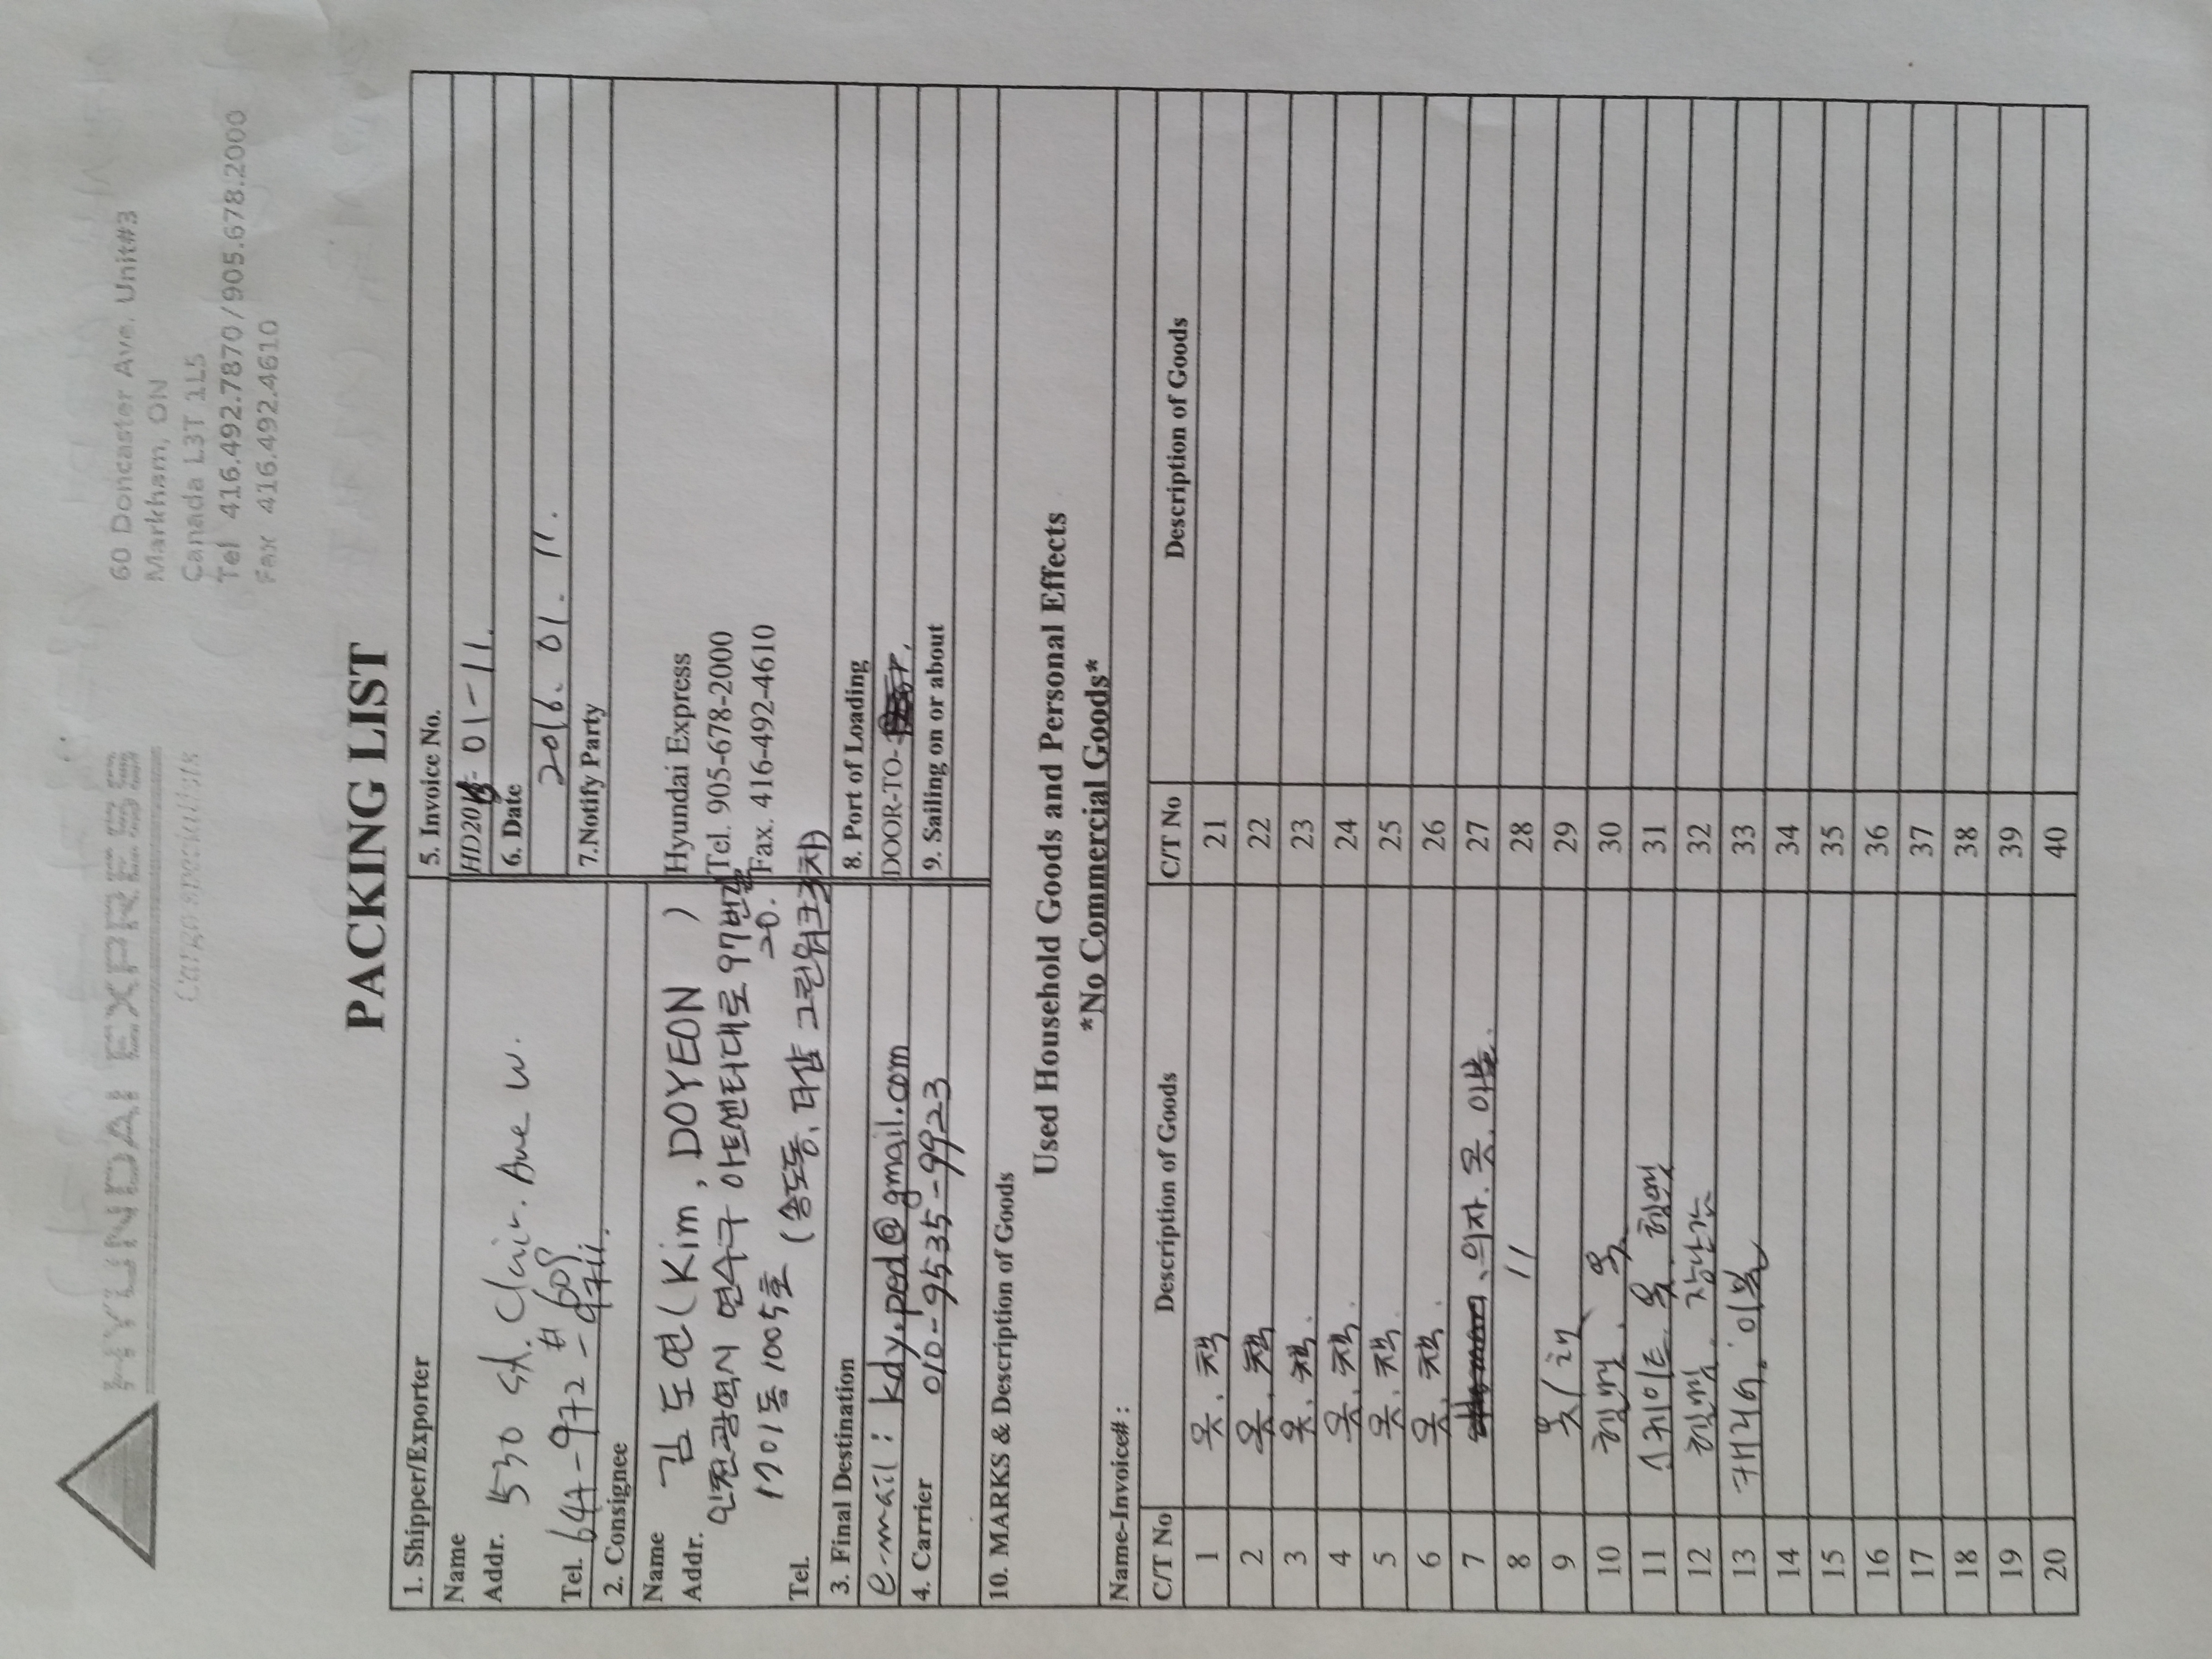 HYUNDAI EXPRESS
Cargo specialists
60 Doncaster Ave. Unit#3
Markham, ON
Canada L3T 1L5
Tel 416.492.7870 / 905.678.2000
Fax 416.492.4610
PACKING LIST
1. Shipper/Exporter
Name
Addr. 530 St. Clair. Ave W.
# 608
Tel. 647-972-9711.
2. Consignee
Name 김도연 (Kim, DOYEON )
Addr. 인천광역시 연수구 아트센터대로 97번길 20.
1701동 1005호 (송도동, 더샵 그린워크3차)
Tel.
3. Final Destination
e-mail : kdy.ped@gmail.com
4. Carrier
010-9535-9923
5. Invoice No.
HD2016-01-11.
6. Date
2016. 01. 11.
7.Notify Party
Hyundai Express
Tel. 905-678-2000
Fax. 416-492-4610
8. Port of Loading
DOOR-TO-
9. Sailing on or about
10. MARKS & Description of Goods
Used Household Goods and Personal Effects
*No Commercial Goods*
Name-Invoice# :
C/T No Description of Goods C/T No Description of Goods
1 옷, 책 21
2 옷, 책 22
3 옷, 책 23
4 옷, 책. 24
5 옷, 책. 25
6 옷, 책. 26
7 의자. 옷. 이불. 27
8 〃 28
9 옷 29
10 옷 30
11 스케이트 옷 31
12 장난감 32
13 이불 33
14 34
15 35
16 36
17 37
18 38
19 39
20 40